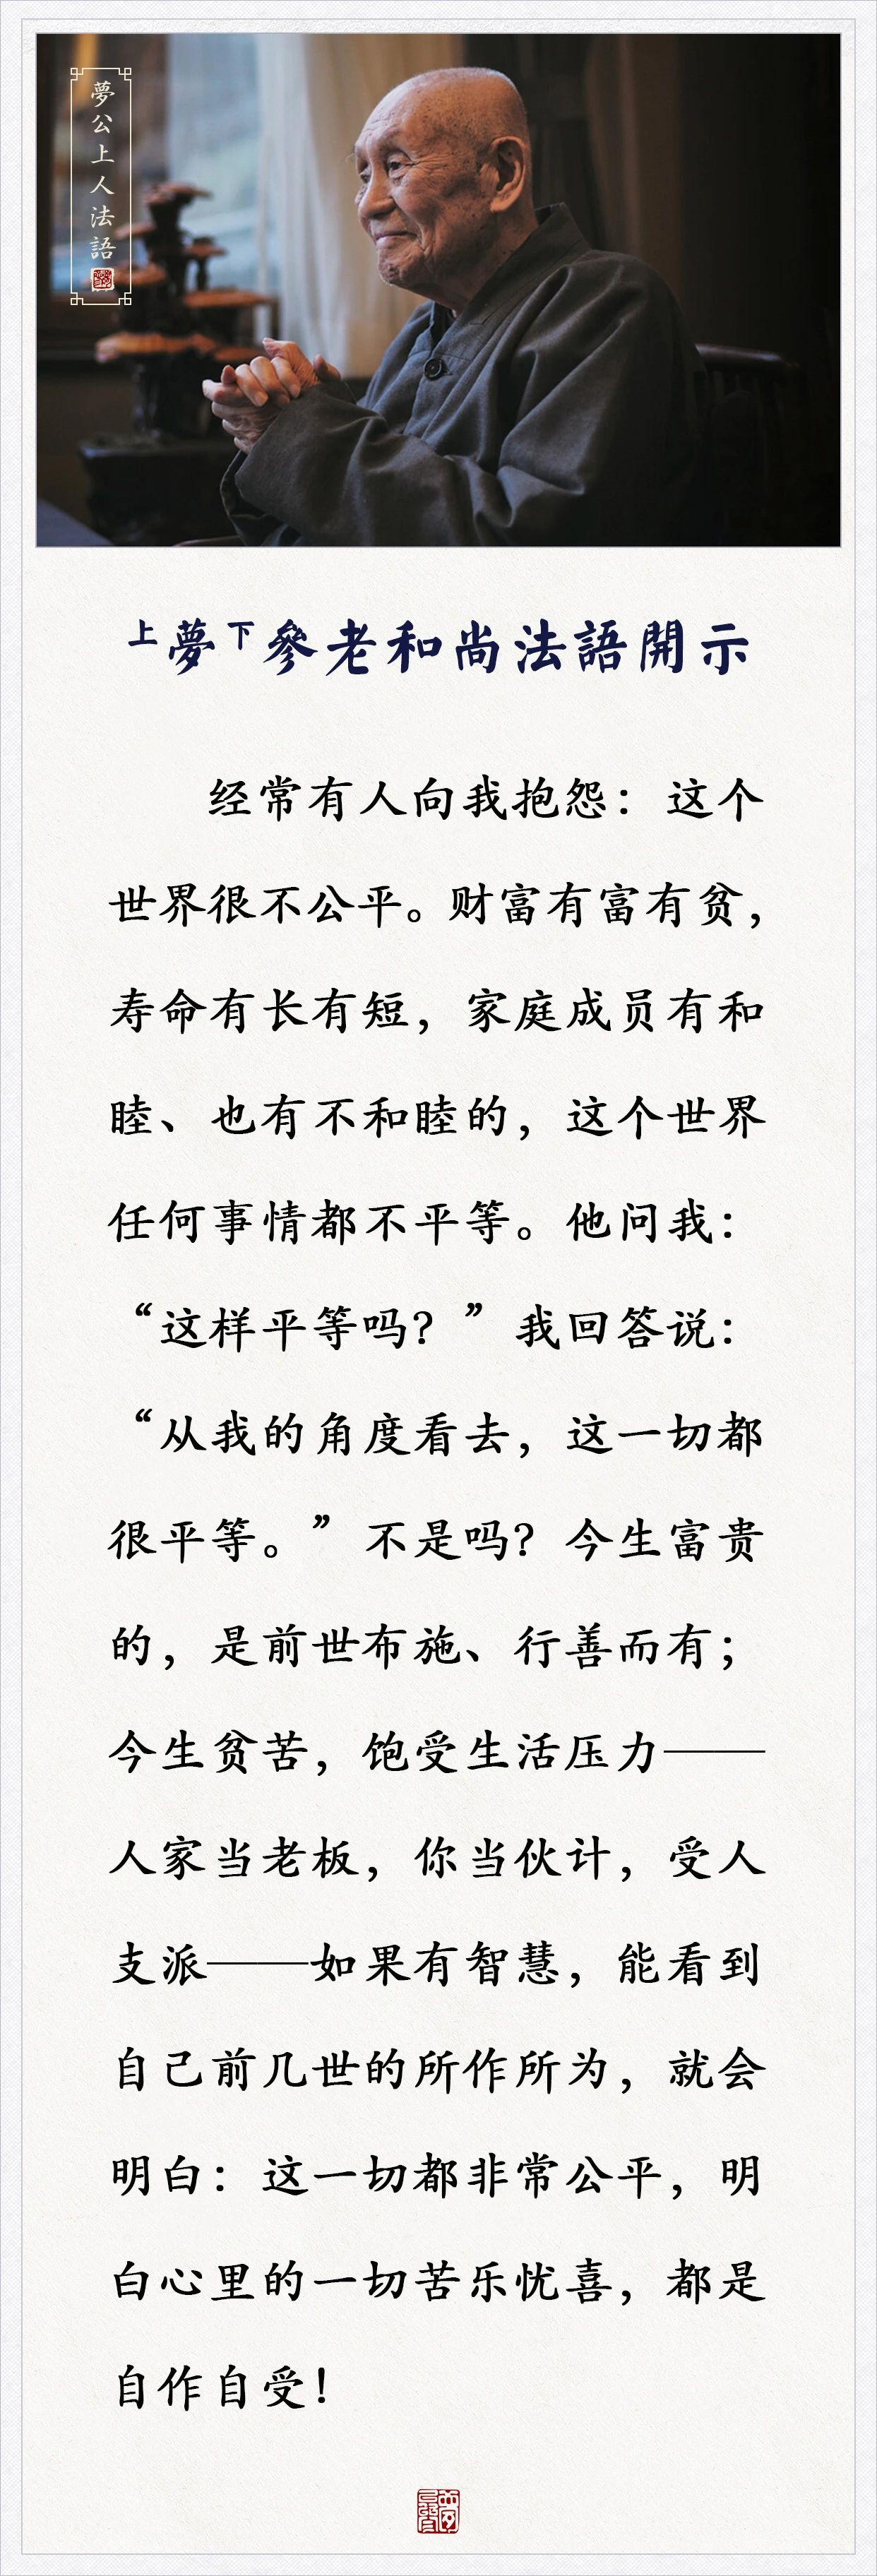 夢公上人法語
上夢下參老和尚法語開示
经常有人向我抱怨：这个
世界很不公平。财富有富有贫，
寿命有长有短，家庭成员有和
睦、也有不和睦的，这个世界
任何事情都不平等。他问我：
“这样平等吗？”我回答说：
“从我的角度看去，这一切都
很平等。”不是吗？今生富贵
的，是前世布施、行善而有；
今生贫苦，饱受生活压力——
人家当老板，你当伙计，受人
支派——如果有智慧，能看到
自己前几世的所作所为，就会
明白：这一切都非常公平，明
白心里的一切苦乐忧喜，都是
自作自受！